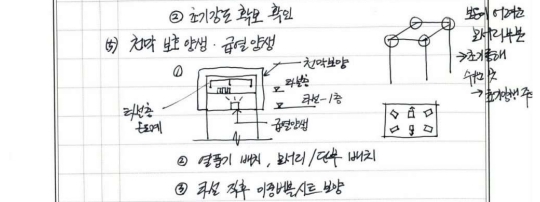 ② 초기강도 확보 확인
(5) 천막 보호양생·급열양생
①
천막보양
타설층
타설-1층
타설층
온도계
급열양생
② 열풍기 배치, 모서리/단부 배치
③ 타설 직후 이중버블시트 보양
보온이 어려운
모서리부분
→ 초기동해
→ 초기양생 주